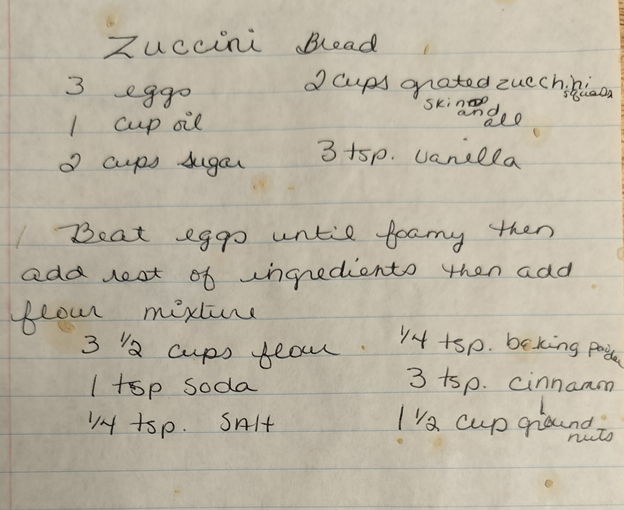 Zuccini Bread
3 eggs 2 cups grated zucchini
squash
skin and all
1 cup oil
2 cups sugar 3 tsp. vanilla
1 Beat eggs until foamy then
add rest of ingredients then add
flour mixture
3 1/2 cups flour 1/4 tsp. baking powder
1 tsp soda 3 tsp. cinnamon
1/4 tsp. SAlt 1 1/2 cup ground
nuts